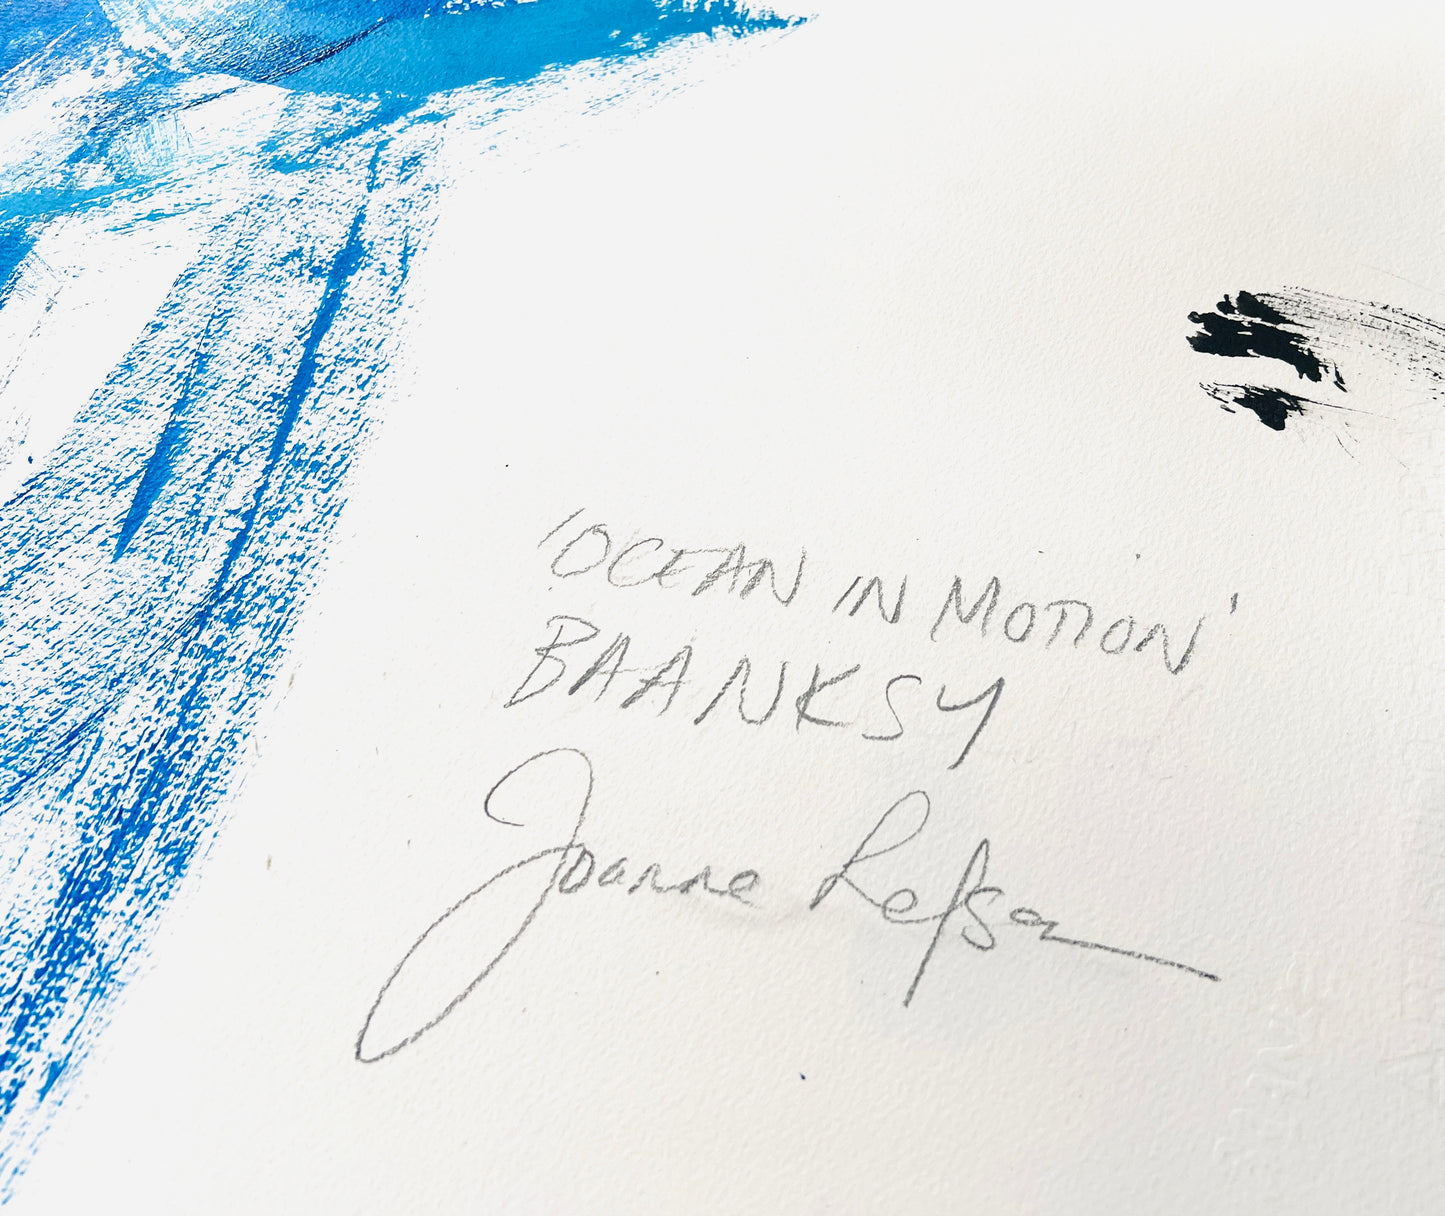 'OCEAN IN MOTION'
BAANKSY
Joanne Lefson